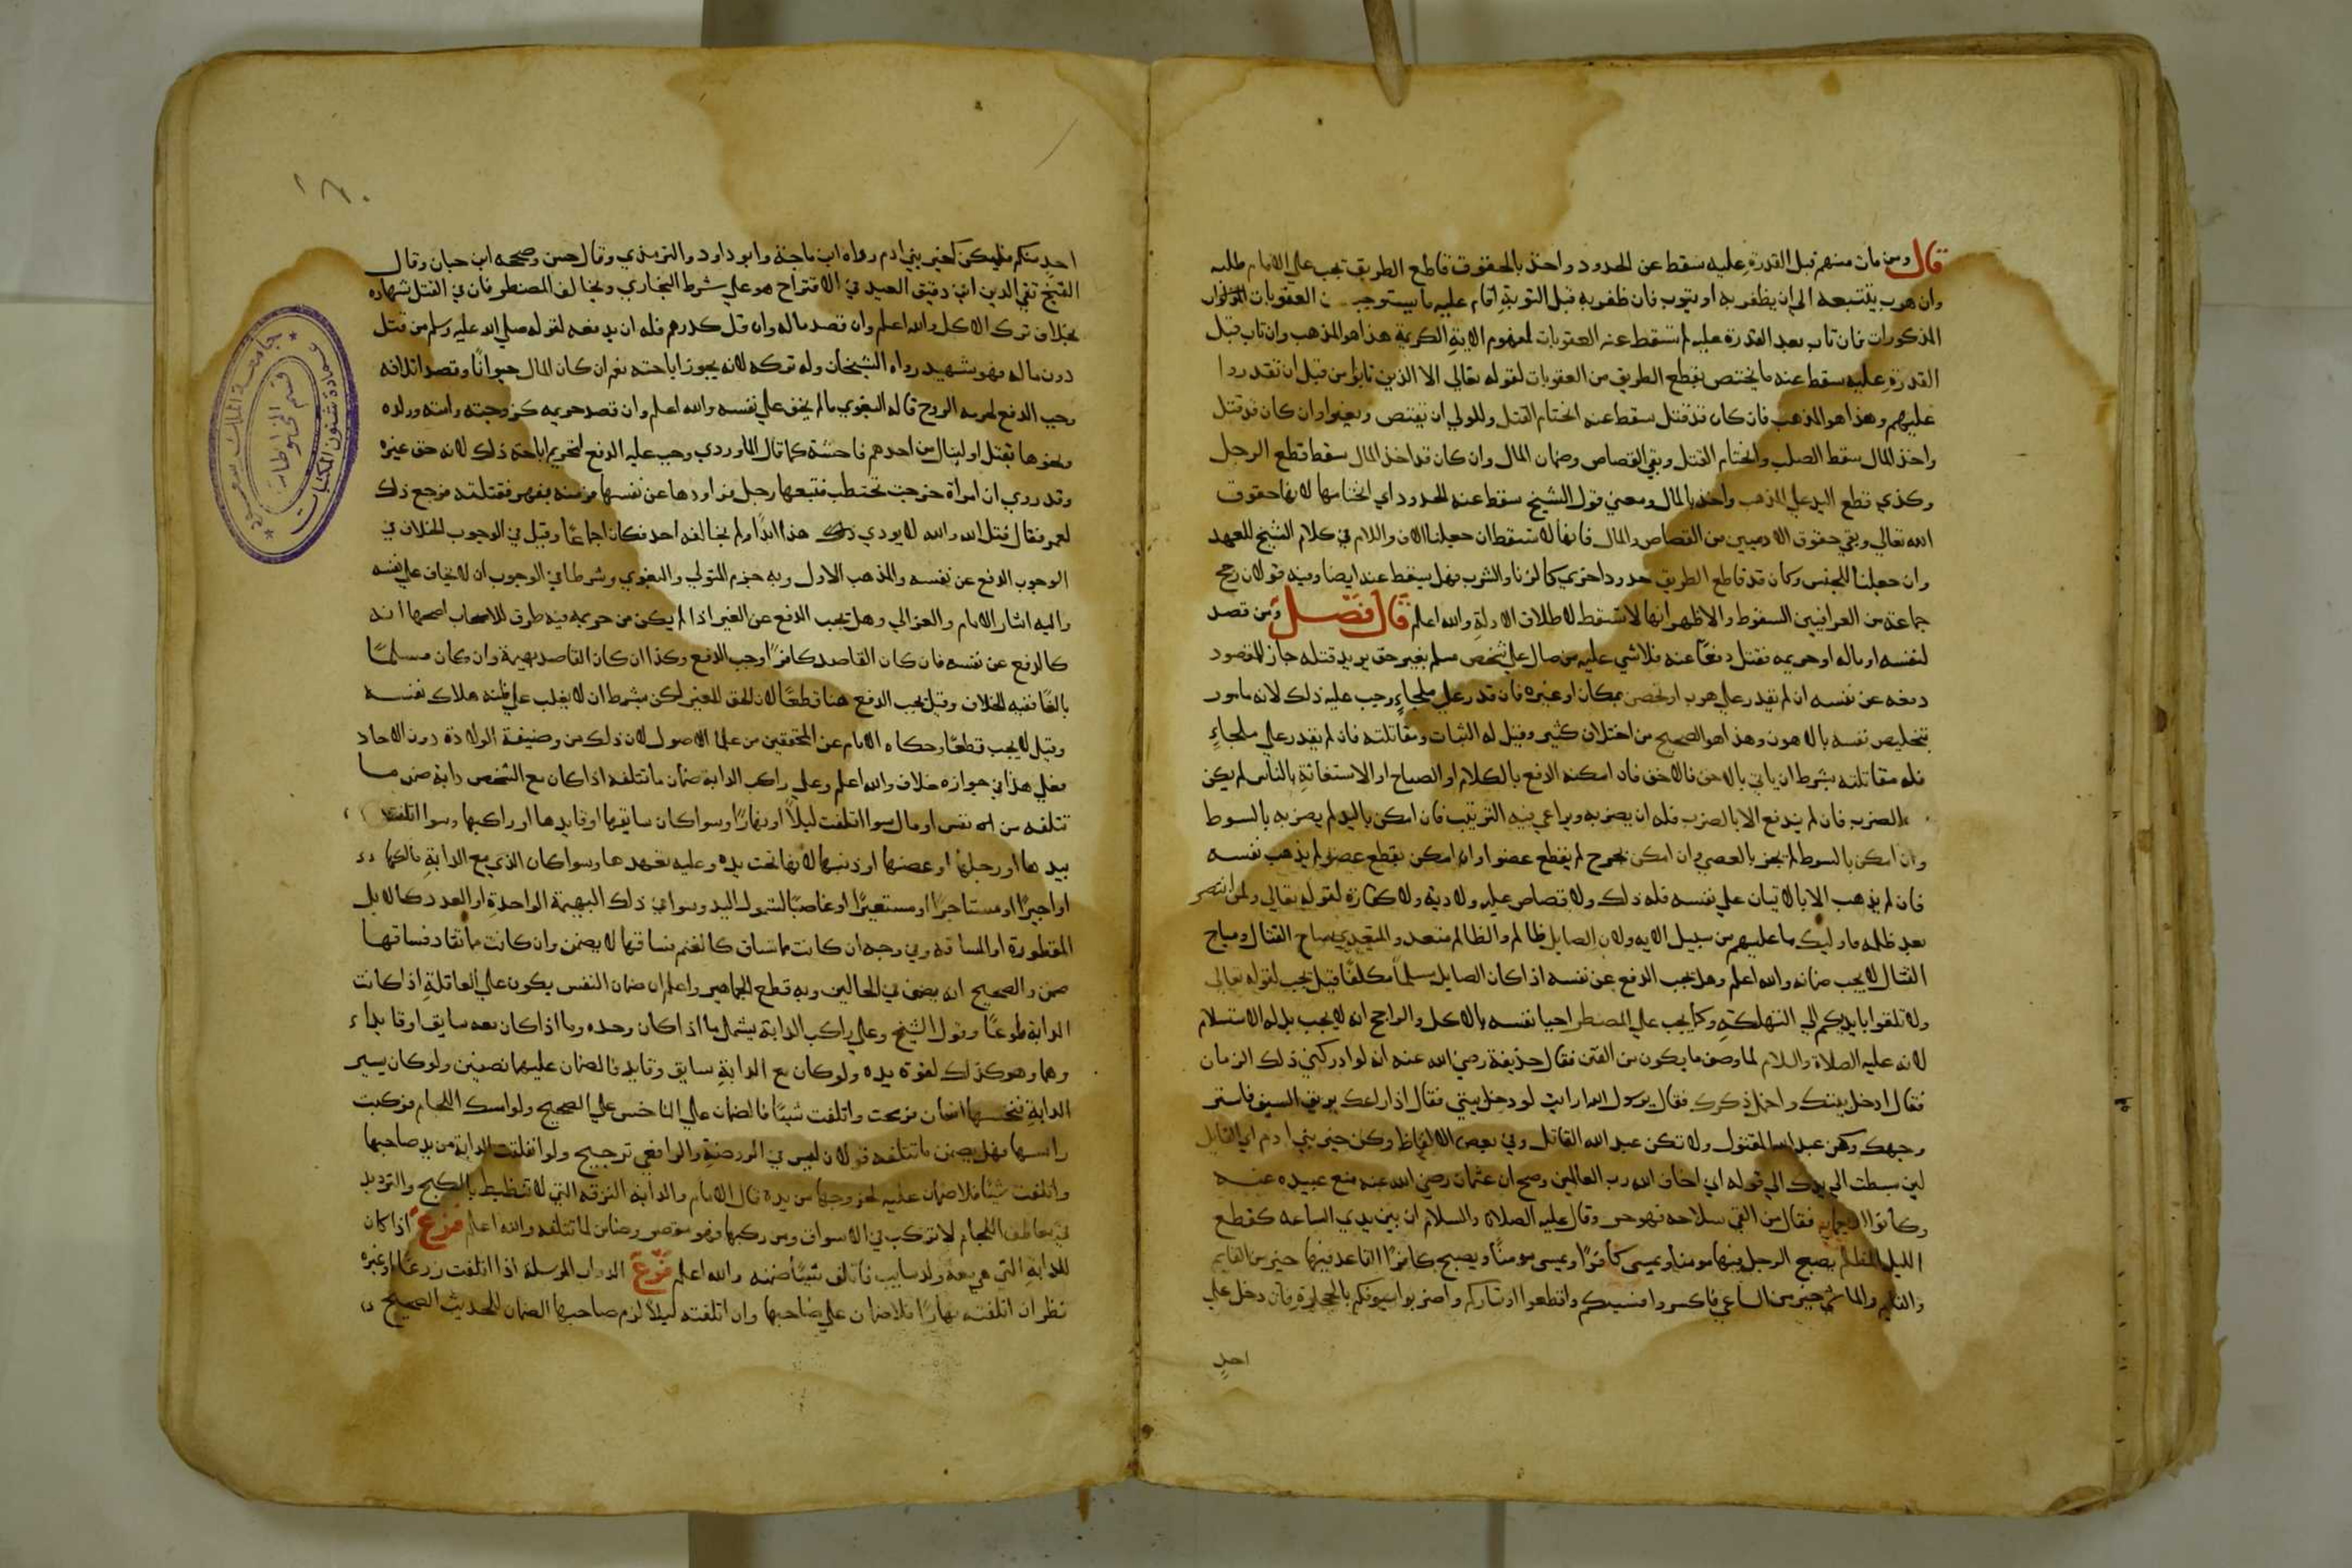 قال ومن مات منهم قبل القدرة عليه سقط عن الحدود واخذ بالحقوق قاطع الطريق يجب علي الامام طلبه
وان هرب يتبعه الى ان يظفر به او يتوب فان ظفر به قبل التوبة اقام عليه ما يستوجب من العقوبات
المذكورات فان تاب بعد القدرة عليه لم تسقط عنه العقوبات لمفهوم الاية الكريمة هذا هو المذهب وان تاب قبل
القدرة عليه سقط عنه ما يختص بقطع الطريق من العقوبات لقوله تعالي الا الذين تابوا من قبل ان تقدروا
عليهم وهذا هو المذهب فان كان قد قتل سقط عنه انحتام القتل وللولي ان يقتص ويعفوا وان كان قد قتل
واخذ المال سقط الصلب وانحتام القتل وبقي القصاص وضمان المال وان كان قد اخذ المال سقط قطع الرجل
وكذي قطع اليد علي المذهب واخذ بالمال ومعني قول الشيخ سقط عنه الحدود اي انحتامها لانها حقوق
الله تعالي وبقي حقوق الادميين من القصاص والمال فانها لا تسقط ان جعلنا الالف واللام في كلام الشيخ للعهد
وان جعلنا للجنس وكان قد قاطع الطريق حدود اخري كالزنا والشرب فهل يسقط عنه ايضا وفيه قولان رجح
جماعة من العراقيين السقوط والاظهر انها لا تسقط لاطلاق الادلة والله اعلم قال فصل ومن قصد
لنفسه او ماله او حريمه فقتل دفعا عنه فلا شي عليه من صال علي شخص مسلم بغير حق يريد قتله جاز للمقصود
دفعه عن نفسه ان لم يقدر علي هرب او تحصن بمكان او غيره فان قدر علي ملجاء وجب عليه ذلك لانه مامور
بتخليص نفسه بالاهون وهذا هو الصحيح من اختلاف كثير وقيل له الثبات ومقاتلته فان لم يقدر علي ملجاء
فله مقاتلته بشرط ان ياتي بالاخف فالاخف فان امكنه الدفع بالكلام او الصياح او الاستغاثة بالناس لم يكن
له الضرب فان لم يندفع الا بالضرب فله ان يضربه ويراعي فيه الترتيب فان امكن باليد لم يضربه بالسوط
وان امكن بالسوط لم يجز بالعصي وان امكن بجرح لم يقطع عضوا وان امكن بقطع عضو لم يذهب نفسه
فان لم يذهب الا بالاتيان علي نفسه فله ذلك ولا قصاص عليه ولا دية ولا كفارة لقوله تعالي ولمن انتصر
بعد ظلمه فاوليك ما عليهم من سبيل الايه ولان الصايل ظالم والظالم متعد والمتعدي مباح القتال ومباح
القتال لا يجب ضمانه والله اعلم وهل يجب الدفع عن نفسه اذا كان الصايل مسلما مكلفا قيل يجب لقوله تعالى
ولا تلقوا بايديكم الي التهلكة وكما يجب علي المضطر احيا نفسه بالاكل والراجح انه لا يجب بل له الاستسلام
لانه عليه الصلاة والسلام لما وصف ما يكون من الفتن فقال حذيفة رضي الله عنه انه لو ادركني ذلك الزمان
فقال ادخل بيتك واخمل ذكرك فقال يرسول الله ارايت لو دخل بيتي فقال اذا راعك بريق السيف فاستر
وجهك وكن عبد الله المقتول ولا تكن عبد الله القاتل وفي بعض الالفاظ وكن خير بني ادم اي القايل
لين بسطت الي يدك الي قوله اني اخاف الله رب العالمين وصح ان عثمان رضي الله عنه منع عبيده عنه
وكانوا فقال من القي سلاحه فهو حر وقال عليه الصلاة والسلام ان بين يدي الساعه كقطع
الليل المظلم يصبح الرجل فيها مومنا ويمسي كافرا ويمسي مومنا ويصبح كافرا القاعد فيها خير من القايم
والقايم والماشي خير من الساعي فاكسروا قسيكم واقطعوا اوتاركم واضربوا سيوفكم بالحجارة فان دخل علي
احد
١٦٠
احد منكم فليكن كخير بني ادم رواه ابن ماجة وابو داود والترمذي وقال حسن وصححه ابن حبان وقال
الشيخ تقي الدين ابن دقيق العيد في الاقتراح هو علي شرط البخاري ويخالف المضطر فان في القتل شهاده
بخلاف ترك الاكل والله اعلم وان قصد ماله وان قل كدرهم فله ان يدفعه لقوله صلي الله عليه وسلم من قتل
دون ماله فهو شهيد رواه الشيخان وله تركه لانه يجوز اباحته نعم ان كان المال حيوانا وقصد اتلافه
وجب الدفع لحرمه الروح قاله البغوي مالم يخف علي نفسه والله اعلم وان قصد حريمه كزوجته وامته وولده
ونحوها بقتل او لينال من احدهم فاحشة كما قال الماوردي وجب عليه الدفع لتحريم اباحة ذلك لانه حق غيره
وقد روي ان امرأة خرجت تحتطب فتبعها رجل فراودها عن نفسها فرمته بفهر فقتلته فرجع ذلك
لعمر فقال قتل الله والله لا يودي ذلك هذا ابدا ولم يخالفه احد فكان اجماعا وقيل في الوجوب الخلاف في
الوجوب الدفع عن نفسه والمذهب الاول وبه جزم المتولي والبغوي وشرطا في الوجوب ان لا يخاف علي نفسه
واليه اشار الامام والغزالي وهل يجب الدفع عن الغير اذا لم يكن من حريمه فيه طرق للاصحاب اصحها انه
كالدفع عن نفسه فان كان القاصد كافرا وجب الدفع وكذا ان كان القاصد بهيمة وان كان مسلما
بالغا ففيه الخلاف وقيل يجب الدفع هنا قطعا لان الحق للغير لكن بشرط ان لا يغلب علي ظنه هلاك نفسه
وقيل لا يجب قطعا وحكاه الامام عن المحققين من علما الاصول لان ذلك من وضيفة الولادة دون الاحاد
فعلي هذا في جوازه خلاف والله اعلم وعلي راكب الدابة ضمان ما تتلفه اذا كان مع الشخص دابة ضمن ما
تتلفه من نفس او مال سوا اتلفت ليلا او نهارا وسوا كان سايقها او قايدها او راكبها وسوا اتلفت
بيدها او رجلها او عضها او ذنبها لانها تحت يده وعليه تعهدها وسوا كان الذي مع الدابة مالكها
او اجيرا او مستاجرا او مستعيرا او غاصبا لشمول اليد وسوا في ذلك البهيمة الواحدة او العدد كالابل
المقطورة او المساقة وفي وجه ان كانت مما تساق كالغنم فساقها لا يضمن وان كانت ما تقاد فساقها
ضمن والصحيح انه يضمن في الحالين وبه قطع الجماهير واعلم ان ضمان النفس يكون علي العاقلة اذا كانت
الدابة طوعا وقول الشيخ وعلي راكب الدابة يشمل ما اذا كان وحده وما اذا كان معه سايق او قايد
وهما وهو كذلك لقوة يده ولو كان مع الدابة سايق وقايد فالضمان عليهما نصفين ولو كان يسير
الدابة فنخسها انسان فرمحت واتلفت شيئا فالضمان علي الناخس علي الصحيح ولو امسك اللجام فركبت
راسها فهل يضمن ما تتلفه قولان ليس في الروضة والرافعي ترجيح ولو انفلتت الدابة من يد صاحبها
واتلفت شيئا فلا ضمان عليه لخروجها من يده قال الامام والدابة النزقه التي لا تنظبط بالكبح والترديد
في معاطف اللجام لا تركب في الاسواق ومن ركبها فهو مقصر وضامن لما تتلفه والله اعلم فرع اذا كان
للدابة التي مع ولد سايب فاتلف شيئا ضمنه والله اعلم فرع الدواب المرسلة اذا اتلفت زرعا او غيره
نظر ان اتلفته نهارا فلا ضمان علي صاحبها وان اتلفته ليلا لزم صاحبها الضمان للحديث الصحيح
جامعة الملك سعود
عمادة شئون المكتبات
قسم المخطوطات